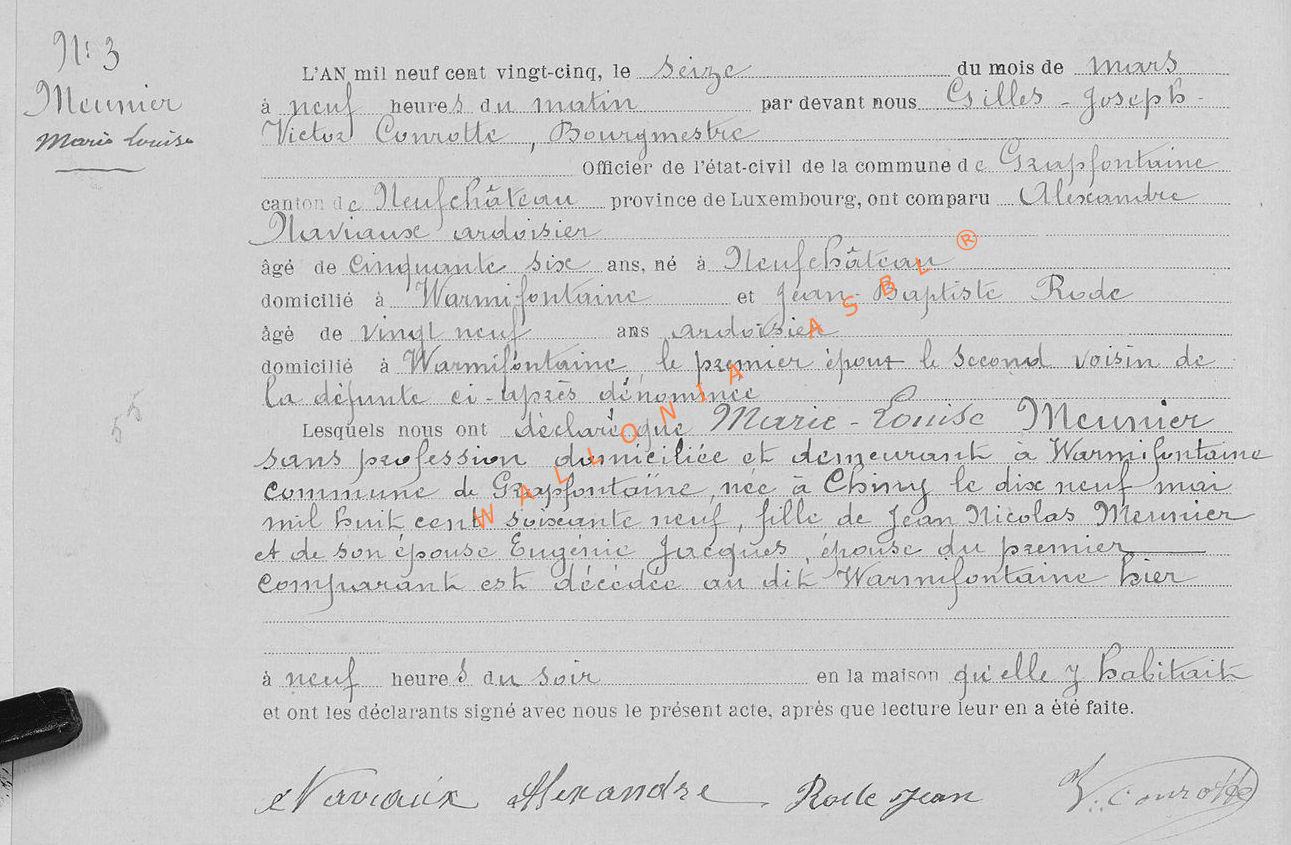 N: 3
Meunier
Marie Louise
L'AN mil neuf cent vingt-cinq, le seize du mois de mars
à neuf heures du matin par devant nous Gilles - Joseph -
Victor Conrotte, Bourgmestre
Officier de l'état-civil de la commune de Grapfontaine
canton de Neufchâteau province de Luxembourg, ont comparu Alexandre
Naviaux ardoisier
âgé de cinquante six ans, né à Neufchâteau
domicilié à Warmifontaine et Jean-Baptiste Rode
âgé de vingt neuf ans ardoisier
domicilié à Warmifontaine le premier époux le second voisin de
la défunte ci-après dénommée
Lesquels nous ont déclaré que Marie-Louise Meunier
sans profession domiciliée et demeurant à Warmifontaine
commune de Grapfontaine, née à Chiny le dix neuf mai
mil huit cent soixante neuf, fille de Jean Nicolas Meunier
et de son épouse Eugénie Jacques, épouse du premier
comparant est décédée au dit Warmifontaine hier
à neuf heures du soir en la maison qu'elle y habitait
et ont les déclarants signé avec nous le présent acte, après que lecture leur en a été faite.
Naviaux Alexandre Rode Jean V. Conrotte
55
WALLONIA ASBL ®